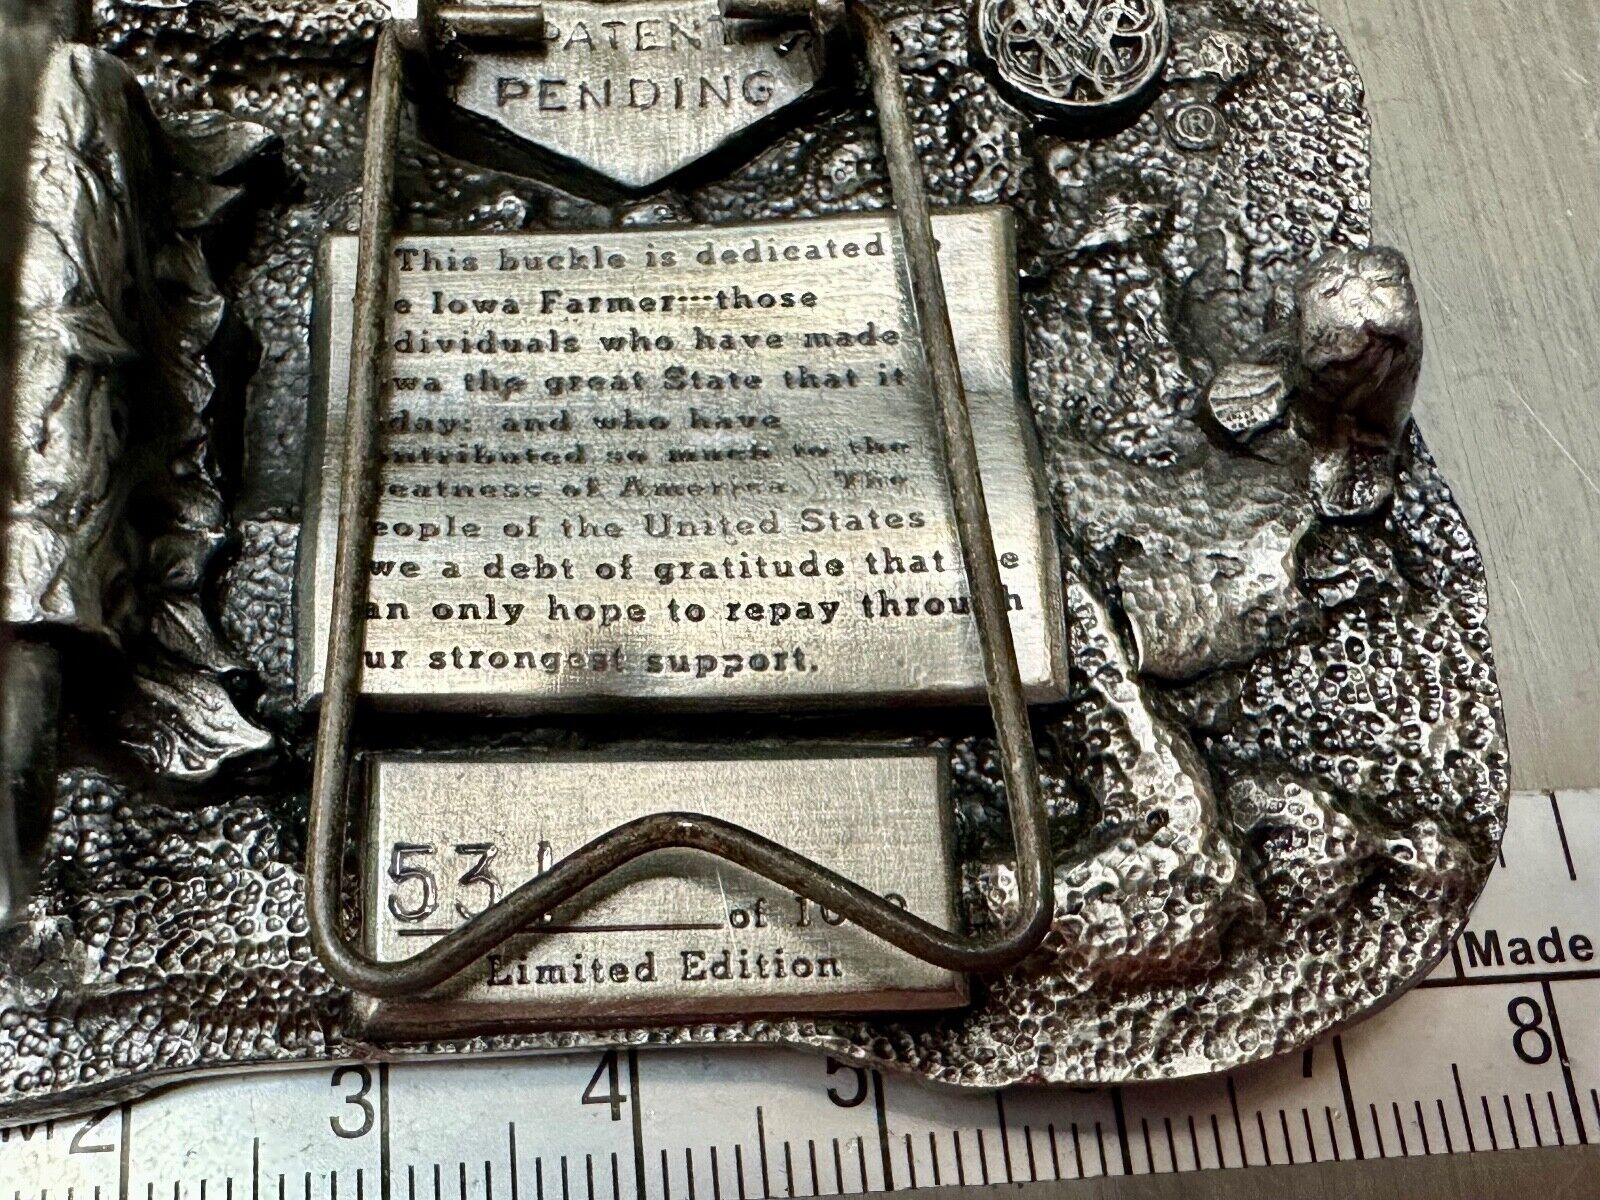 PATENT
PENDING
®
This buckle is dedicated
e Iowa Farmer---those
dividuals who have made
wa the great State that it
day; and who have
ntributed so much to the
eatness of America. The
eople of the United States
we a debt of gratitude that e
an only hope to repay through
ur strongest support.
53 of
Limited Edition
Made
2 3 4 5 7 8